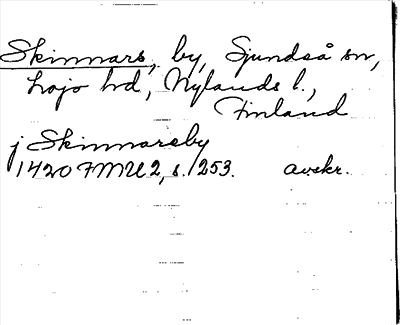 Skinnars, by, Sjundså sn,
Lojo hd, Nylands l.,
Finland
j Skinnareby
1420 FMU 2, s. 253. avskr.